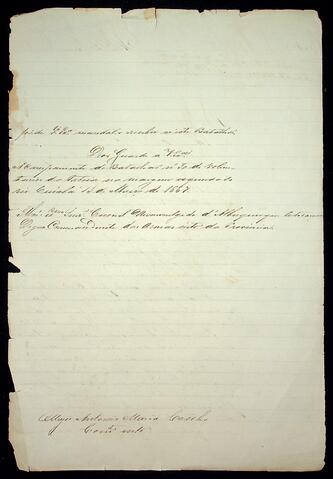 pode V. Exª mandal-o receber n'este Batalhão.
Deos Guarde a V. Exª
Acampamento do Batalhão nº 20 de Volun
tarios da Patria na margem esquerda do
rio Cuiabá de Março de 1867.
Illmº e Exmº Senr. Coronel Albuquerque
Digno Commandante das Armas d'esta Provincia.
Major Antonio Maria Coelho
Comte